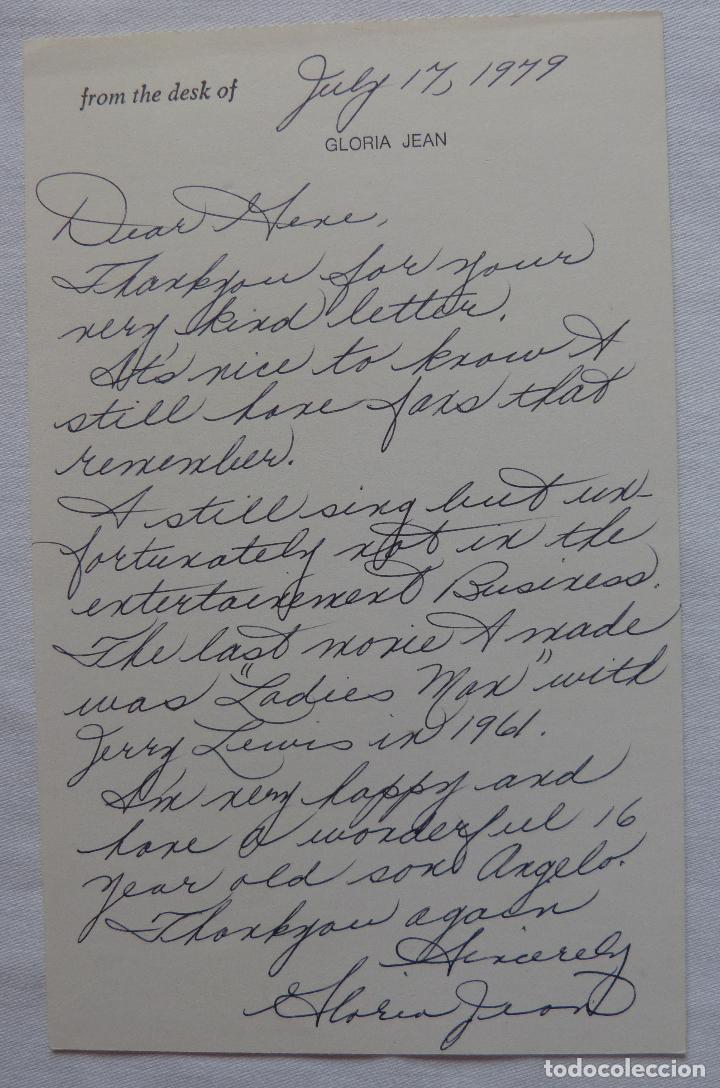 from the desk of
July 17, 1979
GLORIA JEAN
Dear Gene,
Thankyou for your
very kind letter.
It's nice to know I
still have fans that
remember.
I still sing but un-
fortunately not in the
entertainement Business.
The last movie I made
was "Ladies Man" with
Jerry Lewis in 1961.
I'm very happy and
have a wonderful 16
year old son Angelo.
Thankyou again
Sincerely
Gloria Jean
todocoleccion